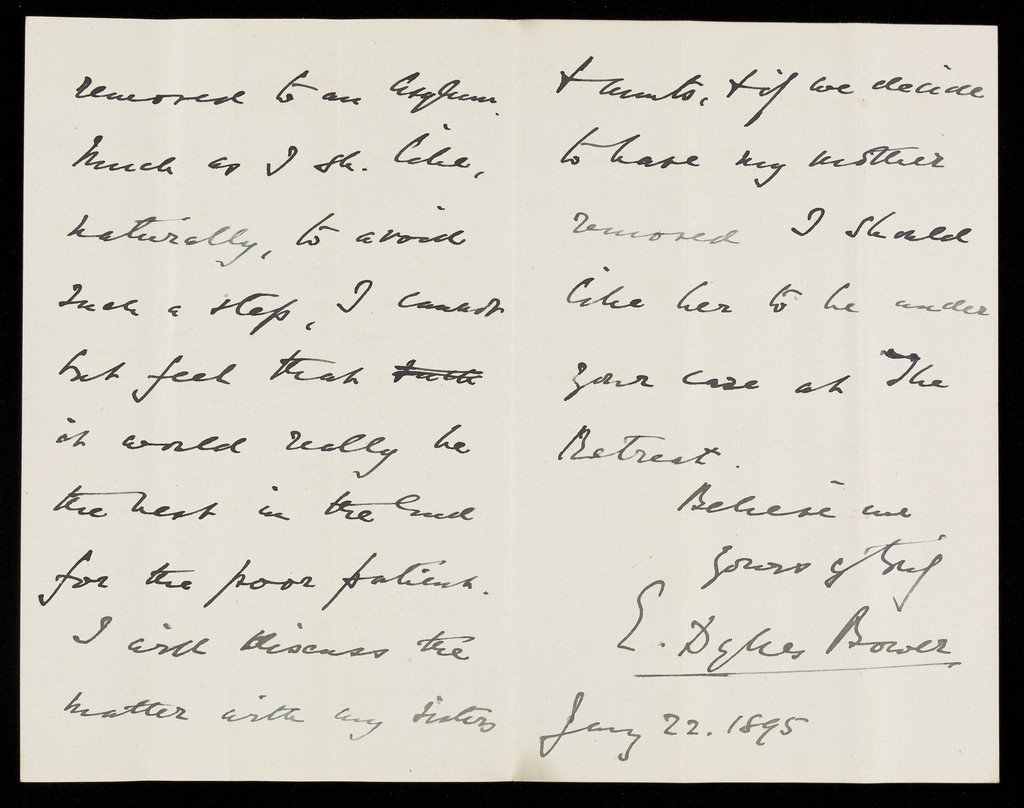 removed to an Asylum.
Much as I sh. like,
naturally, to avoid
such a step, I cannot
but feel that
it would really be
the best in the end
for the poor patient.
I will discuss the
matter with my sisters
& aunts, & if we decide
to have my mother
removed I should
like her to be under
your care at The
Retreat.
Believe me
yours
E. Dykes Bower
Jany 22. 1895